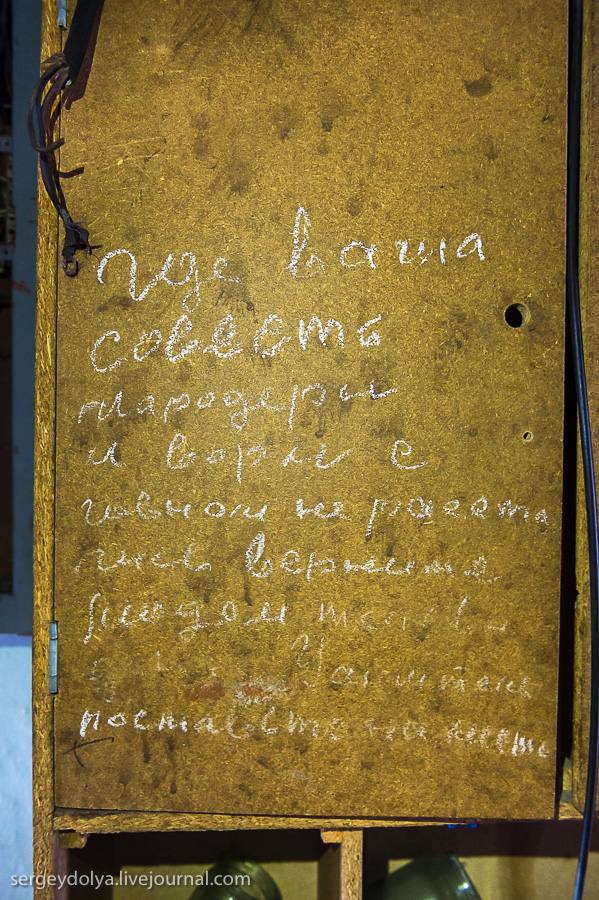 где ваша
совесть
мародеры
и воры с
говном не расста
лись верните
людям
Усилитель
поставьте на место
sergeydolya.livejournal.com